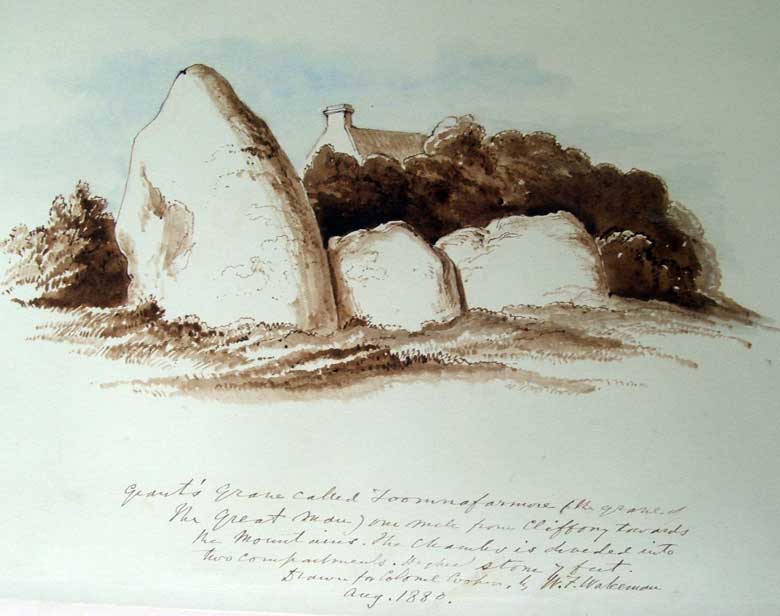 Giant's Grave called Toomnafarmore (the grave of
the Great Man) one mile from Cliffony towards
the Mountains. The Chamber is divided into
two compartments. Highest stone 7 feet.
Drawn for Colonel Cooper, by W.F. Wakeman
Aug. 1880.